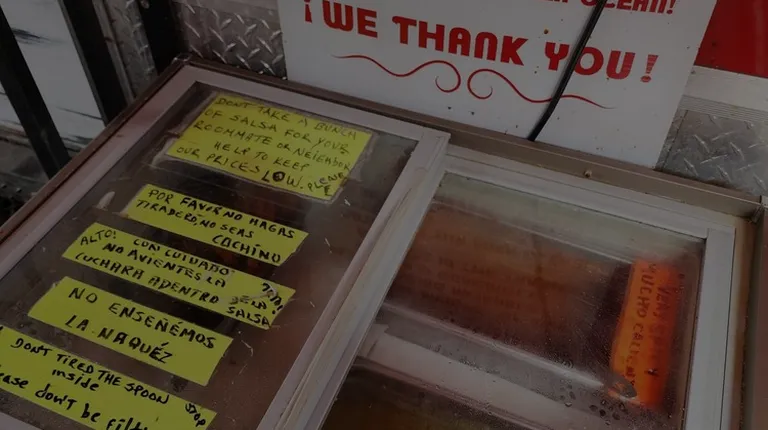 CLEAN!
¡WE THANK YOU!
DON'T TAKE A BUNCH
OF SALSA FOR YOUR
ROOMMATE OR NEIGHBOR
HELP TO KEEP
OUR PRICES LOW. PLEASE
POR FAVER NO HAGAS
TIRADERO, NO SEAS
COCHINO
ALTO: CON CUIDADO:
NO AVIENTES LA
CUCHARA ADENTRO DE LA
SALSA!
NO ENSEÑEMOS
LA NAQUÉZ
DON'T TIRED THE SPOON
inside
please don't be